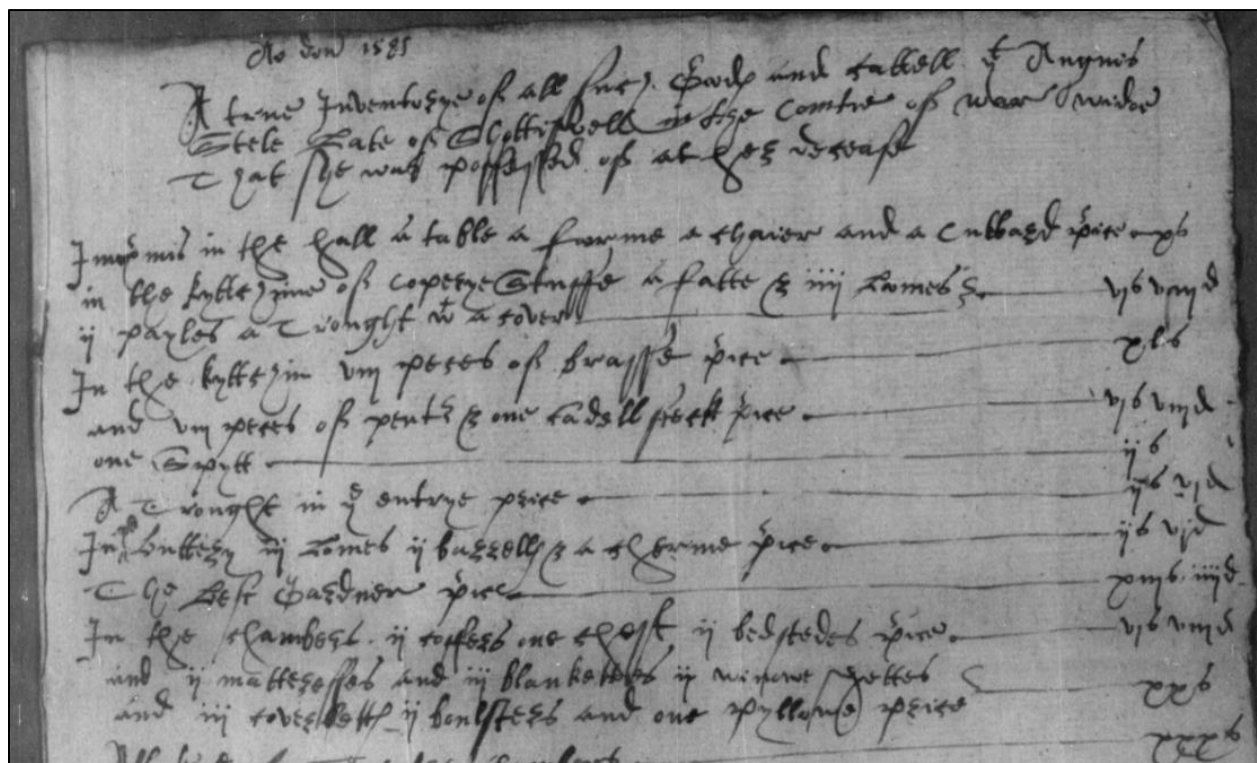 Ao dom 1585
A true Inventorye of all such goods and cattell yt Angnes
Stele Late of Shottiswell in the Comtie of war widoe
That she was possessed of at her decease
Imprimis in the hall a table a forme a chaier and a Cubbard price xs
in the kyttchinne of Coperye Stuffe a fatte & iiii Lomes & vis viiid
ii payles a Trought wt a cover
In the kyttchin viii peces of brasse price xls
and viii peces of pentr & one Candellsteck price vis viiid
one Spytt iis
A Trought in ye entrye price iis vid
In ye Buttery iii Lomes ii barrells & a cherme price iis vid
The Best Gardner price xiiis iiiid
In the chambers ii coffers one chest ii bedstedes price vis viiid
and ii mattresses and iii blankettes ii shettes
and iii coverletts ii boulsters and one pyllowe price xxs
xxxs